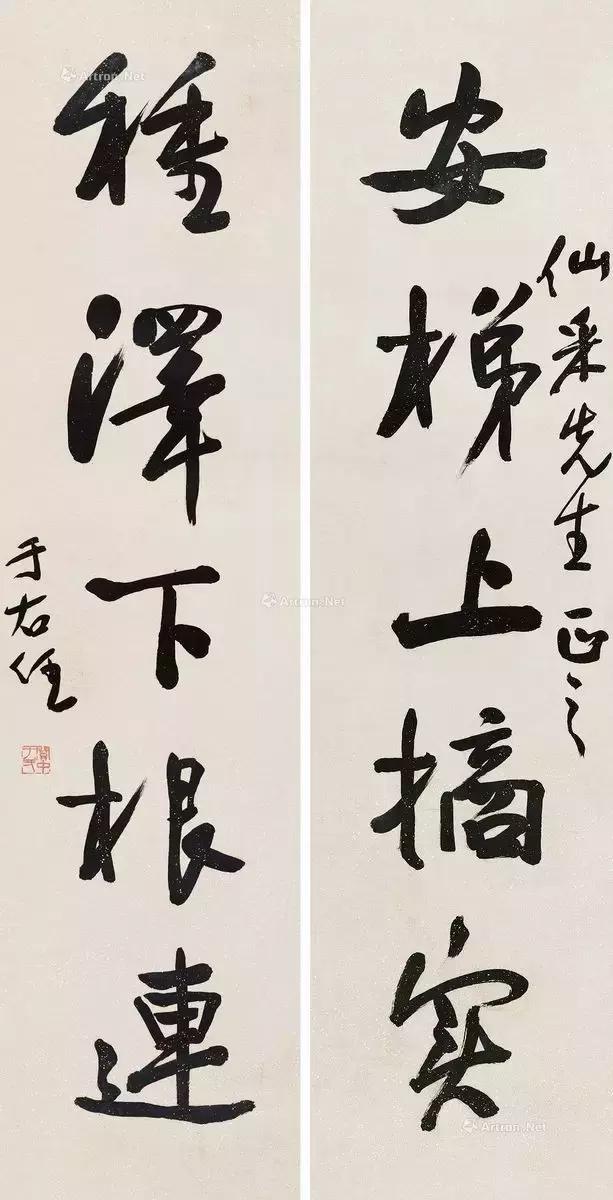 安梯上摘实
仙采先生正之
種澤下根連
于右任
Artron.Net
Artron.Net
Artron.Net